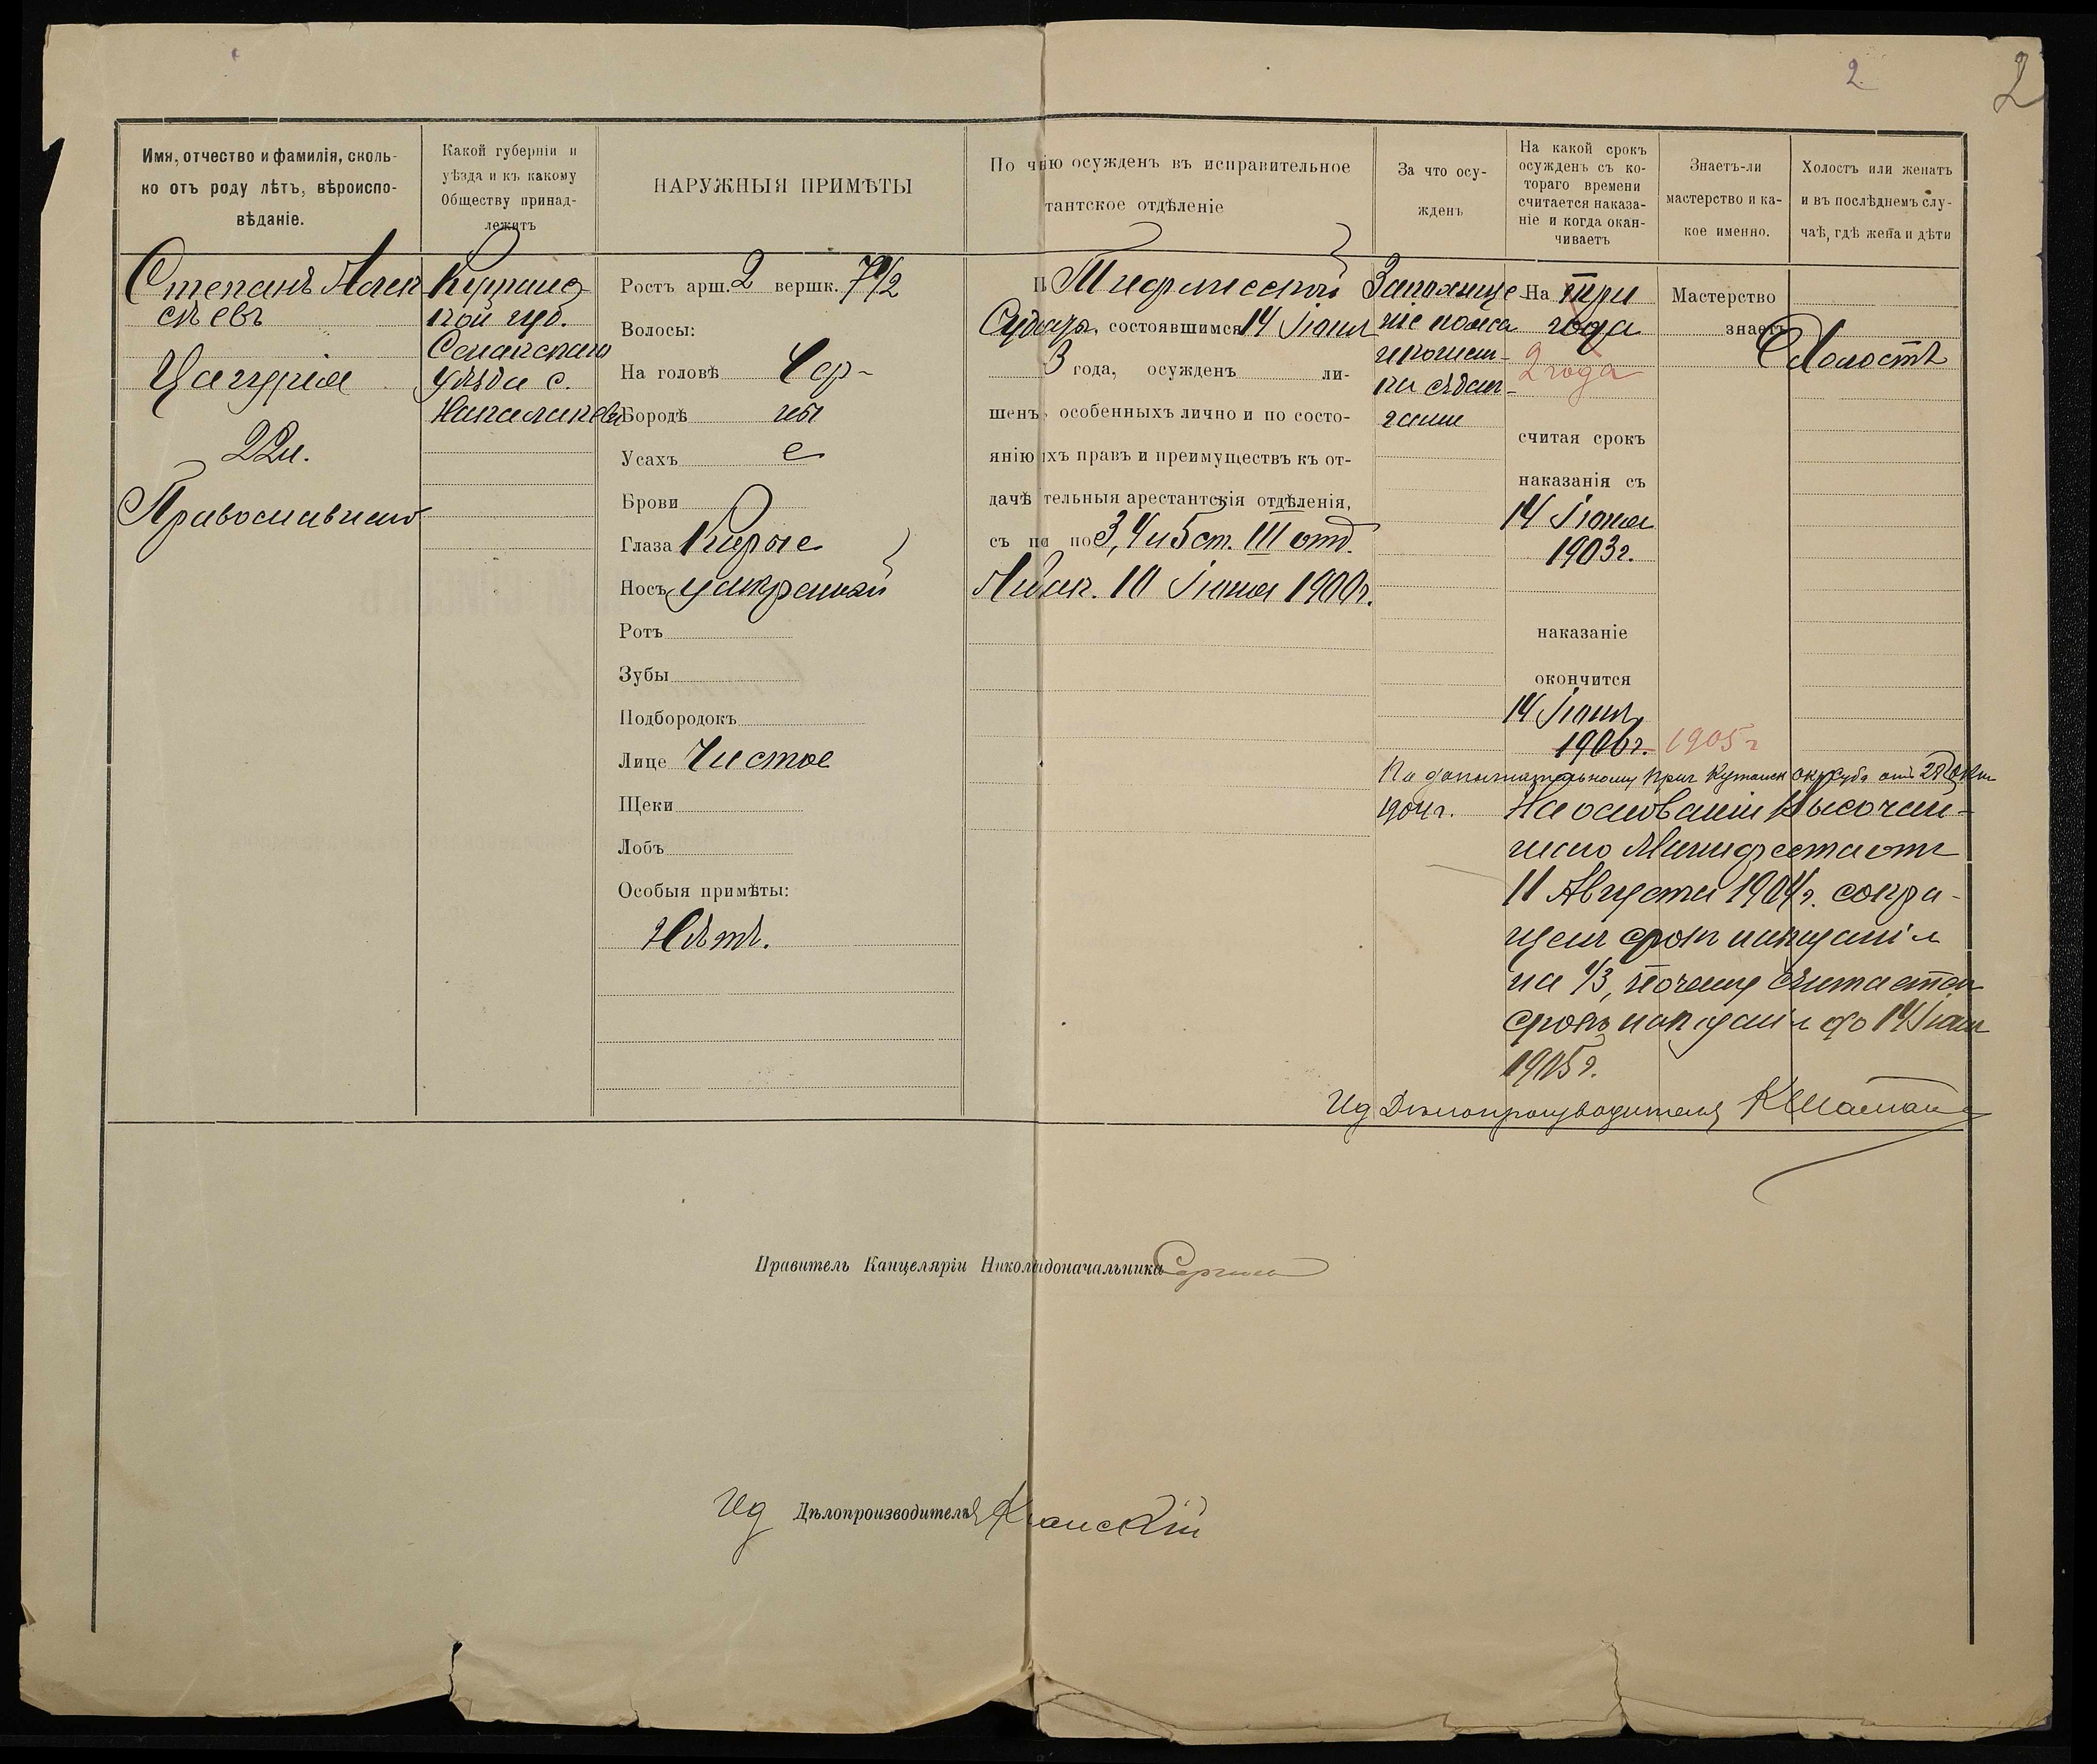 2
2
Имя, отчество и фамилія, сколь-
ко отъ роду лѣтъ, вѣроиспо-
вѣданіе.
Какой губерніи и
уѣзда и къ какому
Обществу принад-
лежитъ
НАРУЖНЫЯ ПРИМѢТЫ
По чью осужденъ въ исправительное
тантское отдѣленіе
За что осу-
жденъ
На какой срокъ
осужденъ съ ко-
тораго времени
считается наказа-
ніе и когда окан-
чиваетъ
Знаетъ-ли
мастерство и ка-
кое именно.
Холостъ или женатъ
и въ послѣднемъ слу-
чаѣ, гдѣ жена и дѣти
Степанъ Алек
сѣевъ
Цагурія
22 л.
Православнаго
Кутаис
кой губ.
Сенакскаго
уѣзда с.
Ростъ арш. 2 вершк. 7 1/2
Волосы:
На головѣ Чер-
Бородѣ ны
Усахъ е
Брови
Глаза Карые
Носъ умѣренный
Ротъ
Зубы
Подбородокъ
Лице Чистое
Щеки
Лобъ
Особыя примѣты:
Нѣтъ.
Тифлисской
Судеб. состоявшимся 14 Іюня
3 года, осужденъ ли-
шенъ особенныхъ лично и по состо-
янію ихъ правъ и преимуществъ къ от-
дачѣ тельныя арестантскія отдѣленія,
съ по 3, 4 и 5 ст. III отд.
Закон. 10 Іюня 1900г.
На три
года
2 года
считая срокъ
наказанія съ
14 Іюня
1903г.
наказаніе
окончится
14 Іюня
1906г. 1905г
Мастерство
знаетъ
Холостъ
По дополнительному Кутаиск окр суда отъ
1904г. На основаніи Высочай-
шаго Манифеста отъ
11 Августа 1904г. сокра-
щенъ срокъ наказанія
на 1/3, почему считается
срокъ наказанія до 14 Іюня
1905г.
Ид Дѣлопроизводителя
Правитель Канцеляріи Николадоначальника
Ид Дѣлопроизводителя